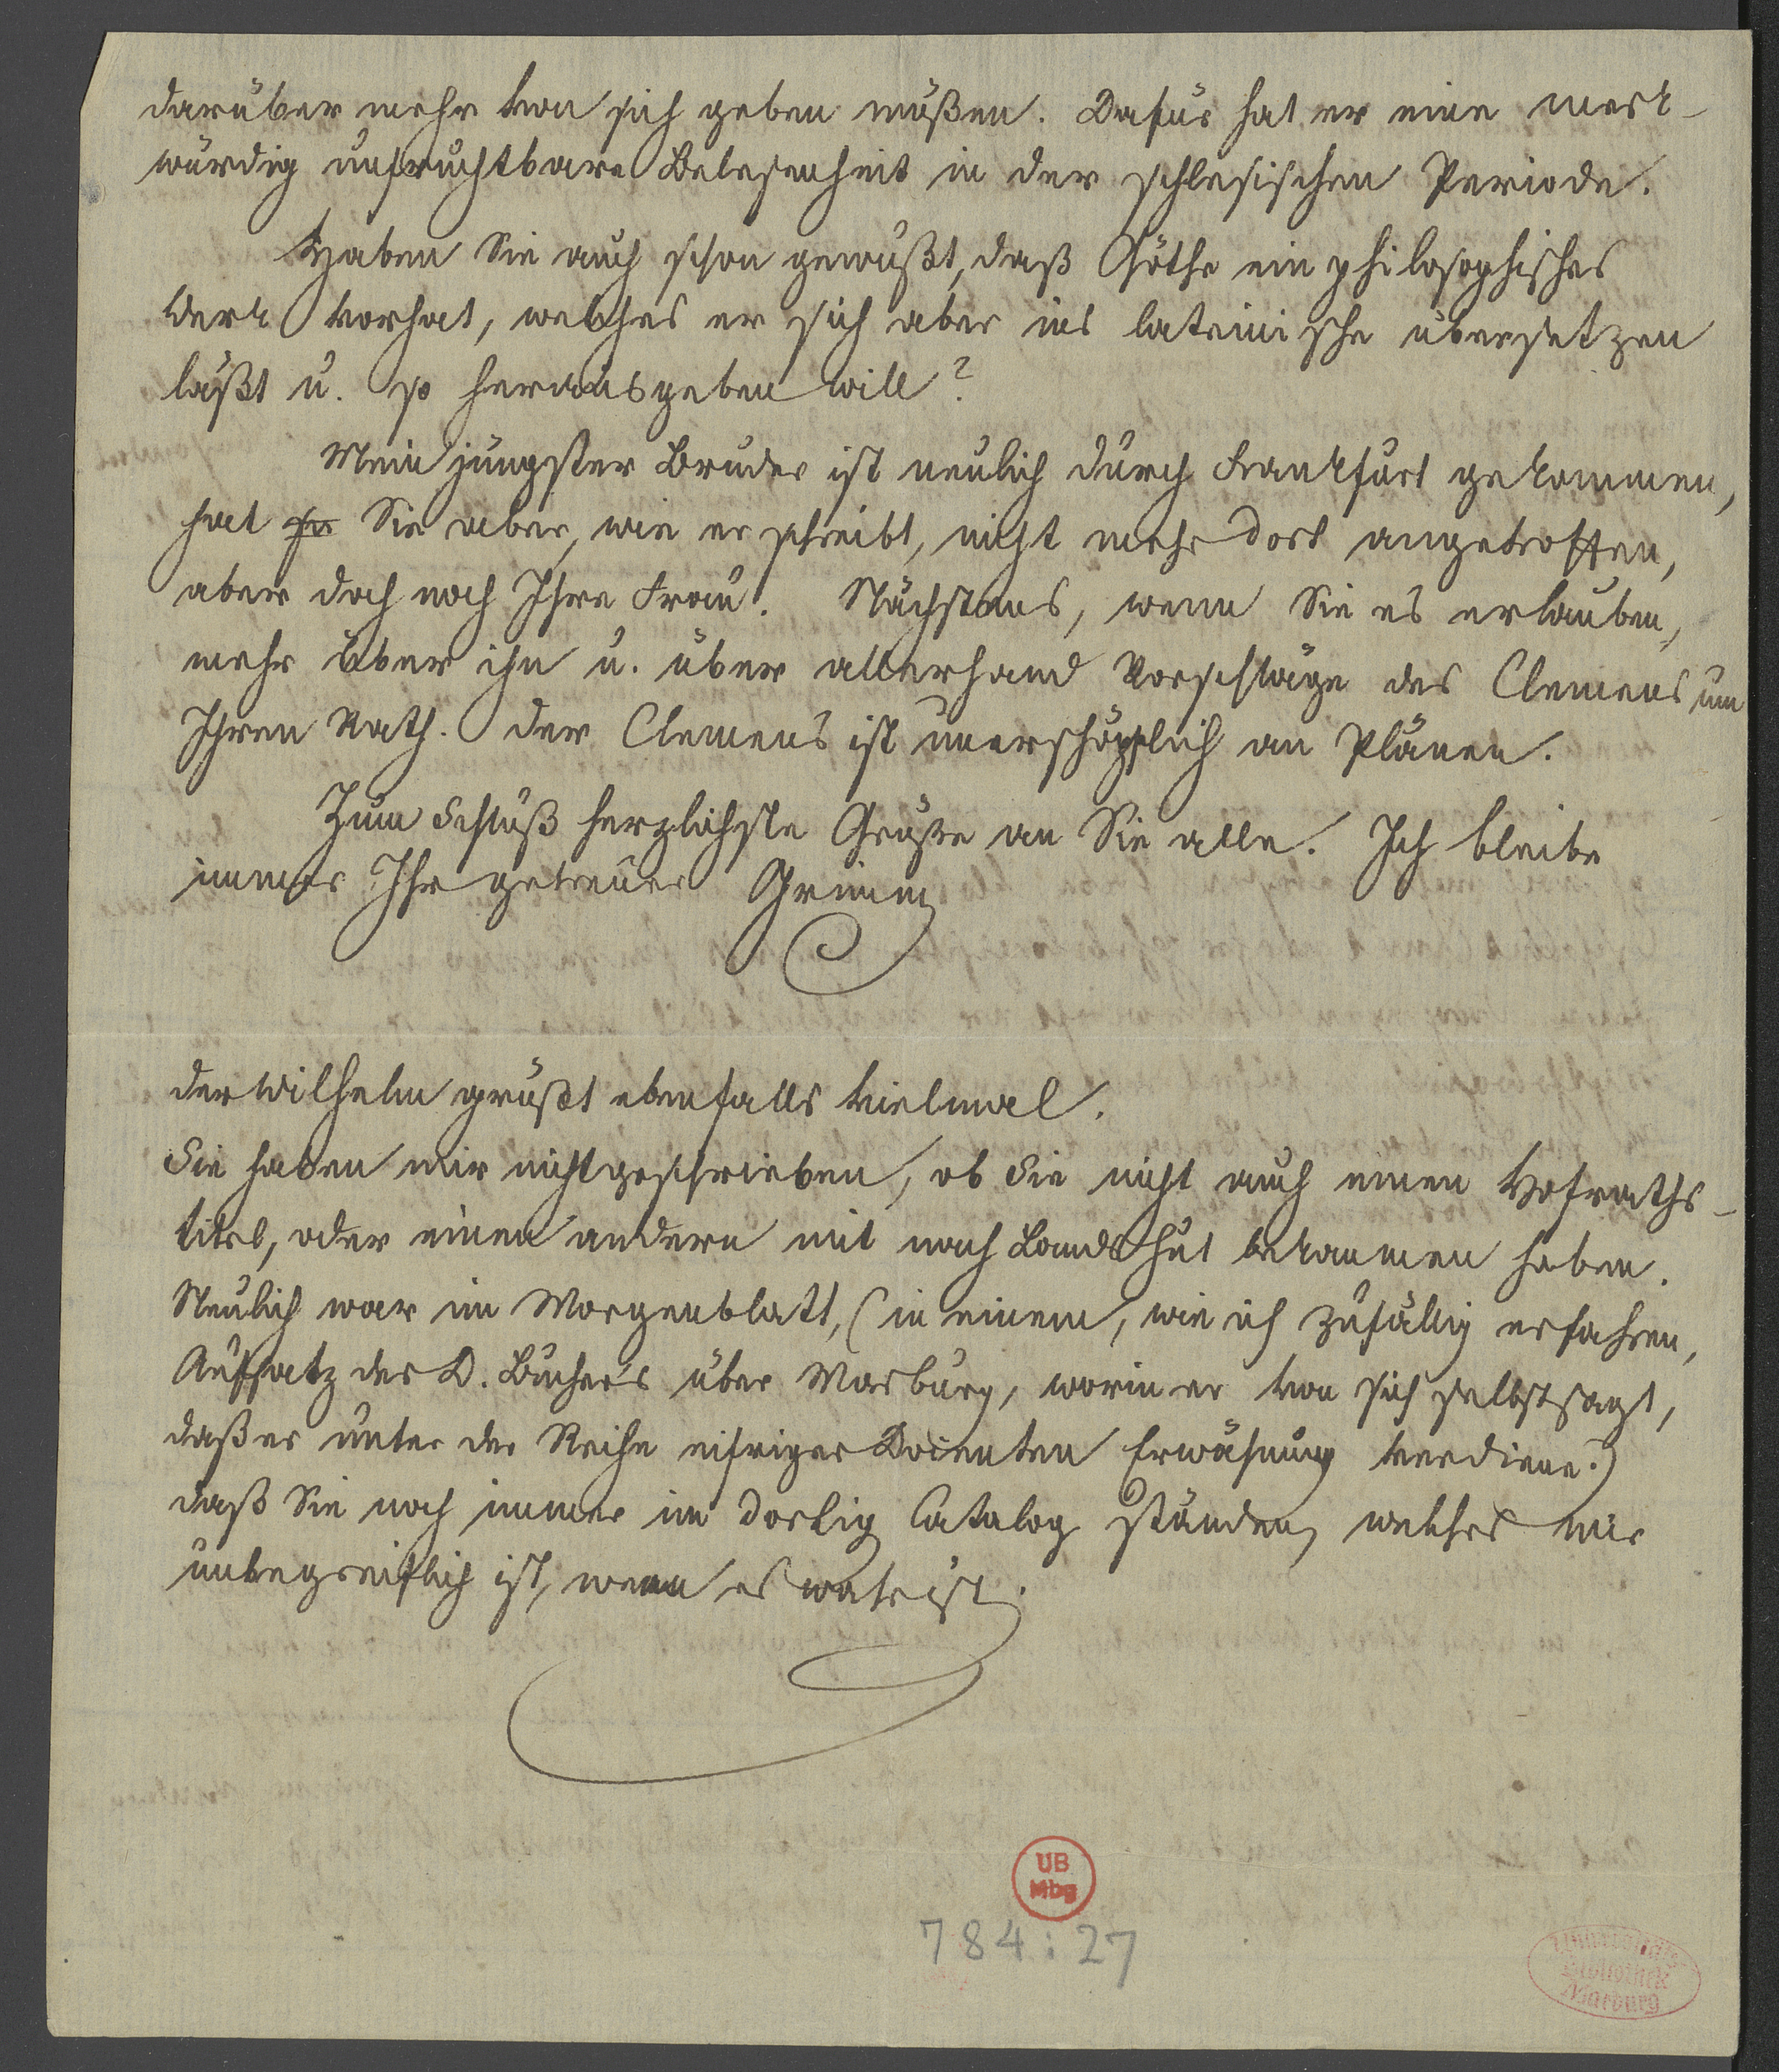 darüber mehr von sich geben müßen. Dafür hat er eine merk-
würdig unfruchtbare Belesenheit in der schlesischen Periode.
Haben Sie auch schon gewußt, daß Göthe ein philosophisches
Werk vorhat, welches er sich aber ins lateinische übersetzen
läßt u. so herausgeben will?
Mein jüngster Bruder ist neulich durch Frankfurt gekommen,
hat Sie aber, wie er schreibt, nicht mehr dort angetroffen,
aber doch noch Ihre Frau. Nächstens, wenn Sie es erlauben,
mehr über ihn u. über allerhand Vorschläge des Clemens um
Ihren Rath. Der Clemens ist unerschöpflich an Plänen.
Zum Schluß herzlichste Grüße an Sie alle. Ich bleibe
immer Ihr getreuer Grimm
der Wilhelm grüßt ebenfalls vielmal.
Sie haben mir nicht geschrieben, ob Sie nicht auch einen Hofraths-
titel, oder einen andern mit nach Landshut bekommen haben.
Neulich war im Morgenblatt, (in einem, wie ich zufällig erfahren,
Aufsatz des D. Buchers über Marburg, worin er von sich selbst sagt,
daß er unter der Reihe eifriger Docenten Erwähnung verdiene.)
daß Sie noch immer im dortig Catalog stünden, welches mir
unbegreiflich ist, wenn es wahr ist.
UB
Mbg
784:27
Universitäts
Bibliothek
Marburg